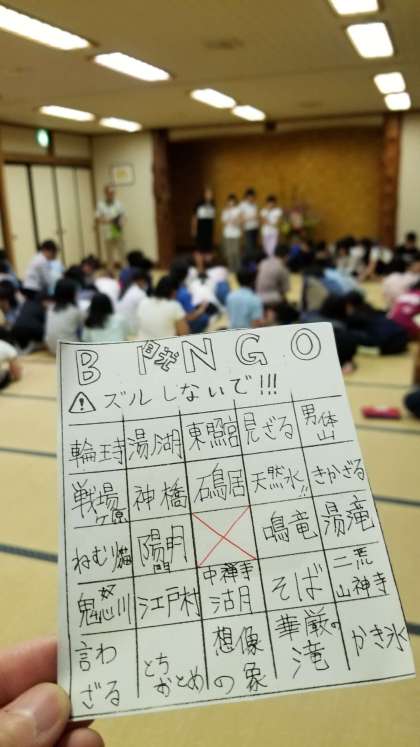 BINGO
⚠ズルしないで!!!
輪王寺 湯湖 東照宮 見ざる 男体山
戦場ヶ原 神橋 石鳥居 天然水!! きかざる
ねむり猫 陽明門 鳴竜 湯滝
鬼怒川 江戸村 中禅寺湖 そば 二荒山神寺
言わざる とちおとめ 想像の象 華厳の滝 かき氷